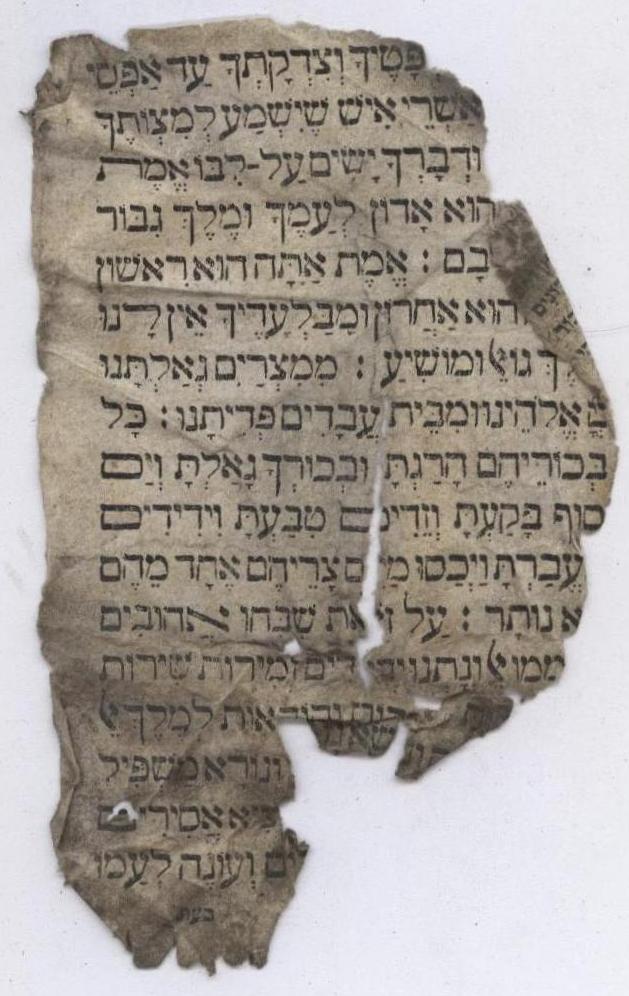 פָּטֶיךָ וְצִדְקָתְךָ עַד אַפְסֵי
אַשְׁרֵי אִישׁ שֶׁיִּשְׁמַע לְמִצְוֹתֶךָ
וּדְבָרְךָ יָשִׂים עַל-לִבּוֹ אֱמֶת
הוּא אָדוֹן לְעַמֶּךָ וּמֶלֶךְ גִּבּוֹר
בָם : אֱמֶת אַתָּה הוּא רִאשׁוֹן
הוּא אַחֲרוֹן וּמִבַּלְעָדֶיךָ אֵין לָנוּ
לֶךְ גּוֹאֵל וּמוֹשִׁיעַ : מִמִּצְרַיִם גְּאַלְתָּנוּ
אֱלֹהֵינוּ וּמִבֵּית עֲבָדִים פְּדִיתָנוּ : כָּל
בְּכוֹרֵיהֶם הָרַגְתָּ וּבְכוֹרְךָ גָּאַלְתָּ וְיַם
סוּף בָּקַעְתָּ וְזֵדִים טִבַּעְתָּ וִידִידִים
עֶבַרְתָּ וַיְכַסּוּ מַיִם צָרֵיהֶם אֶחָד מֵהֶם
א נוֹתָר : עַל זֹאת שִׁבְּחוּ אֲהוּבִים
מֲמוּ אֵל וְנָתְנוּ יְדִידִים זְמִירוֹת שִׁירוֹת
וְהוֹדָאוֹת לְמֶלֶךְ אֵל
וְנוֹרָא מַשְׁפִּיל
אֲסִירִים
ים וְעוֹנֶה לְעַמּוֹ
בעת